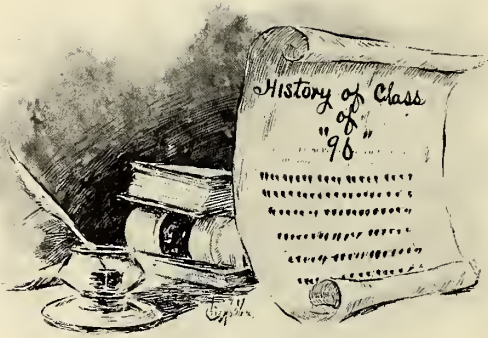 History of Class
of
"96"